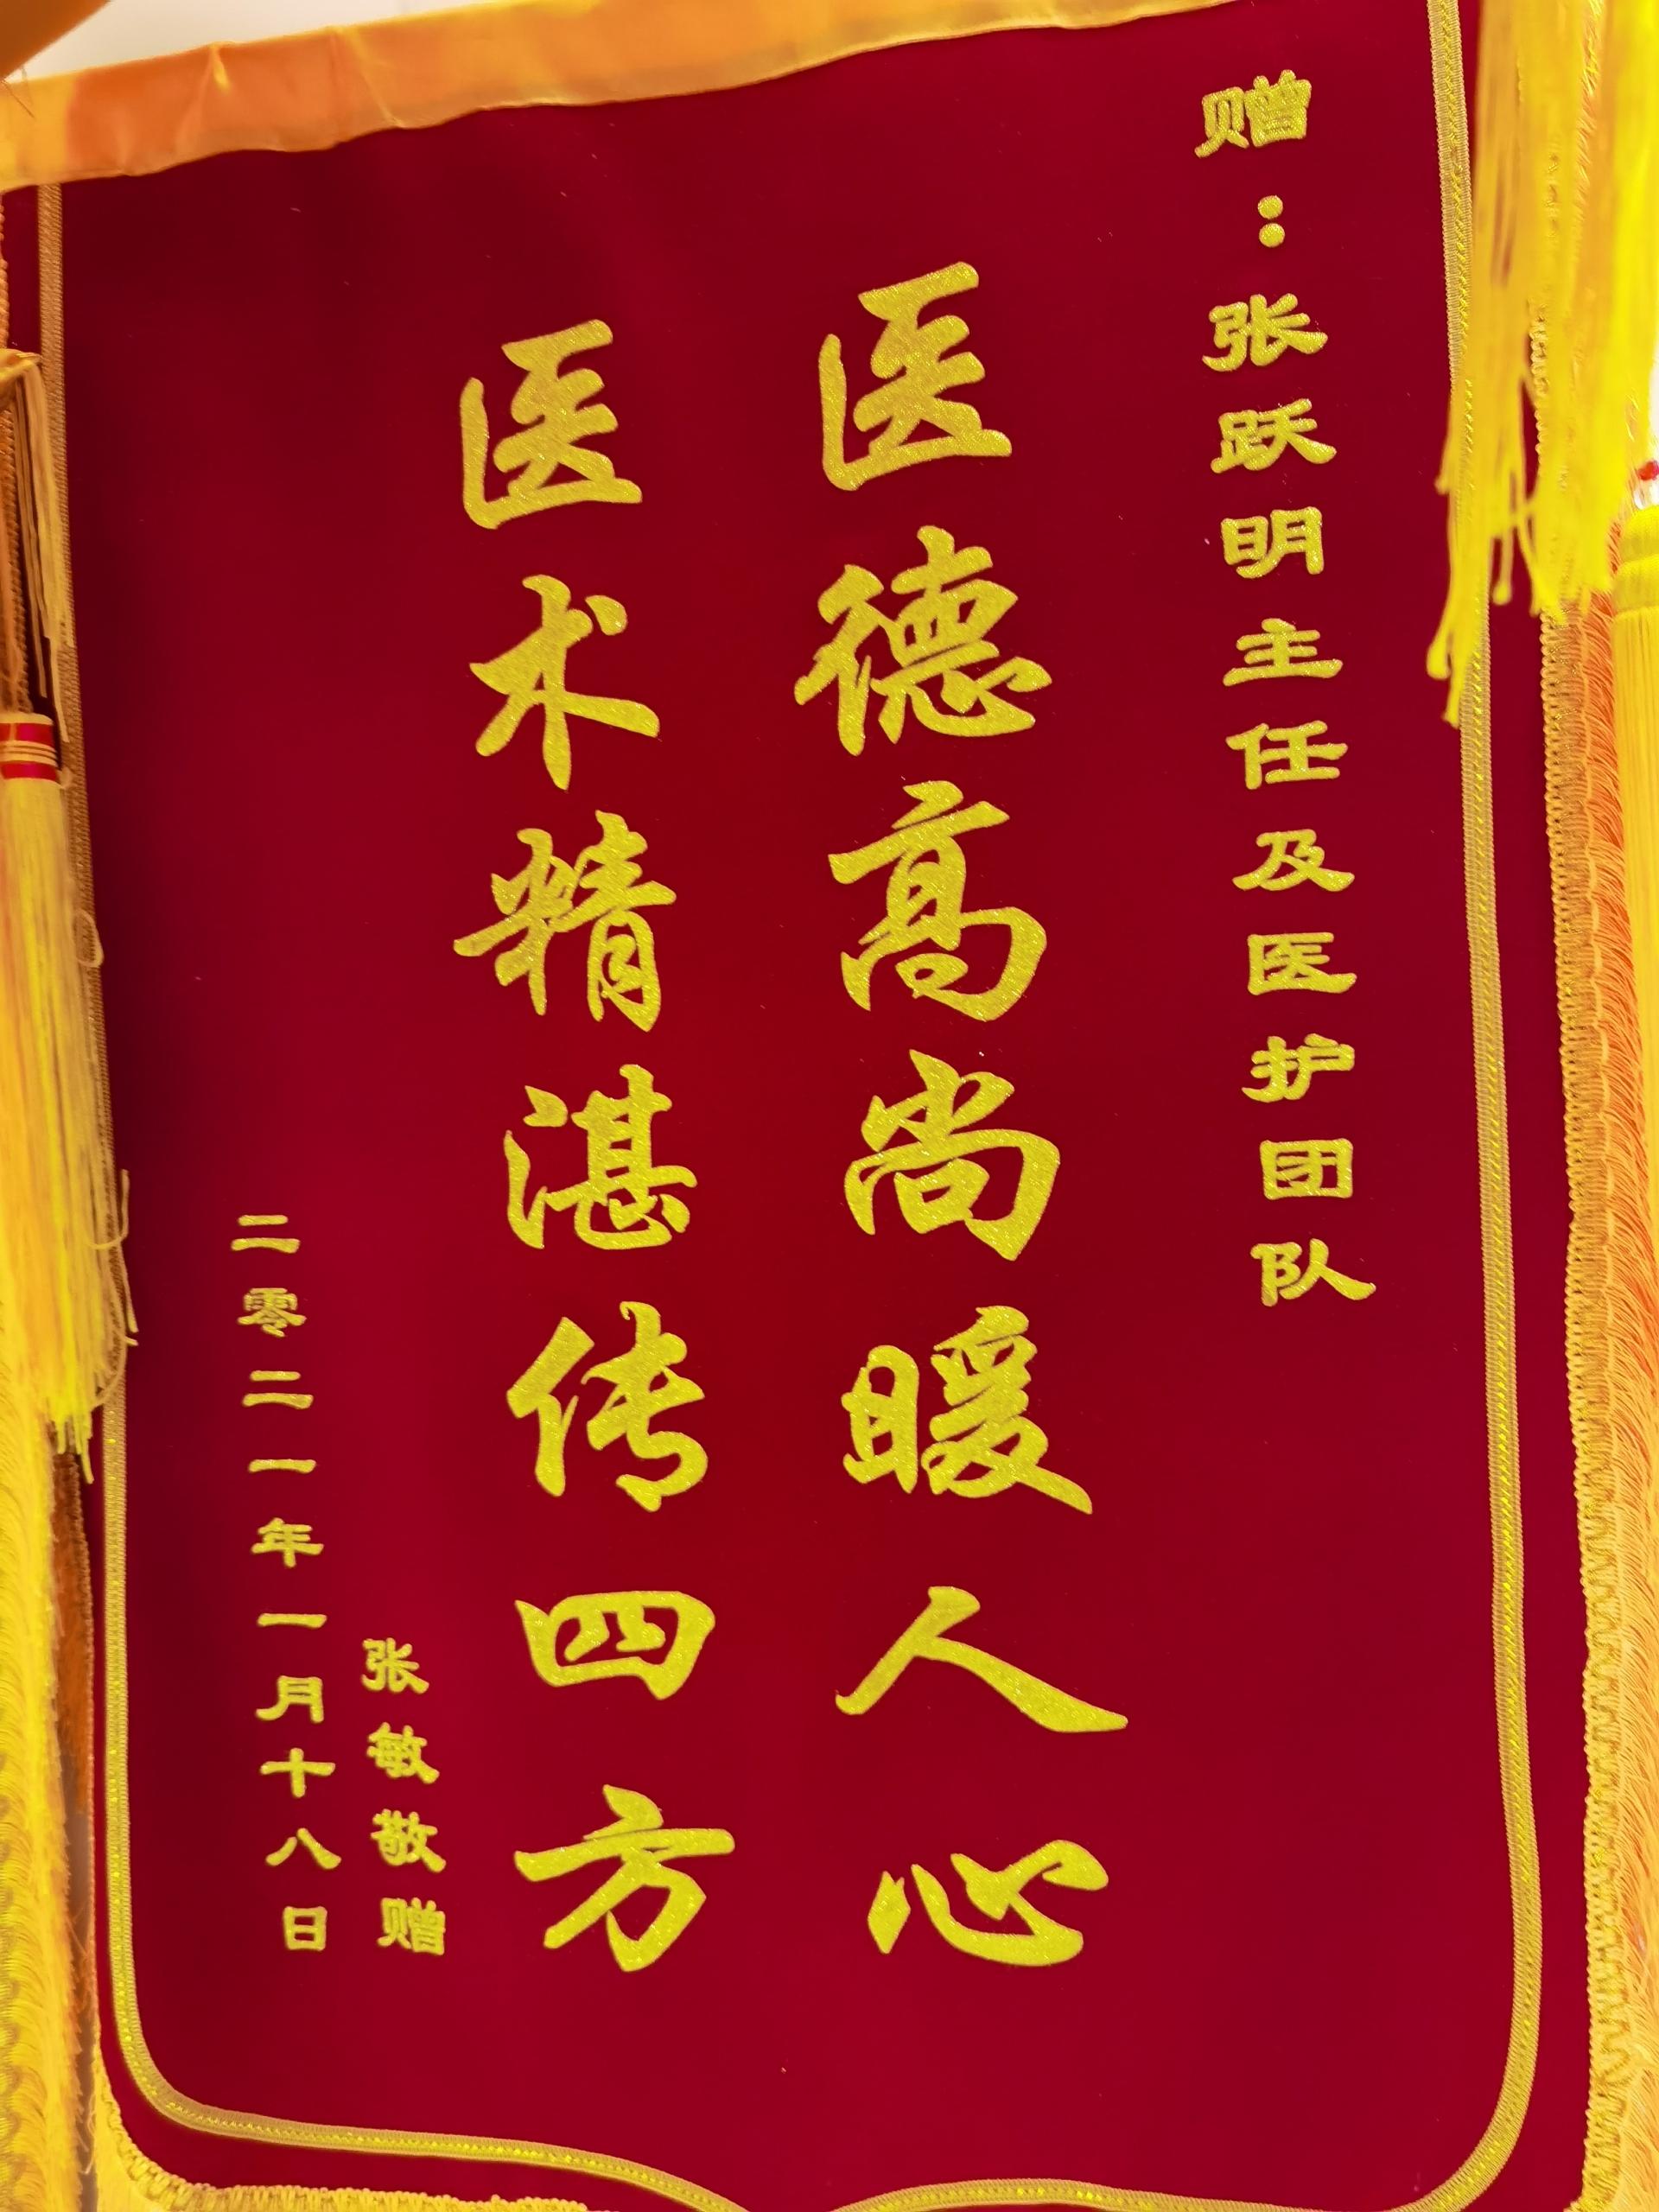 赠：张跃明主任及医护团队
医德高尚暖人心
医术精湛传四方
张敏敬赠
二零二一年一月十八日